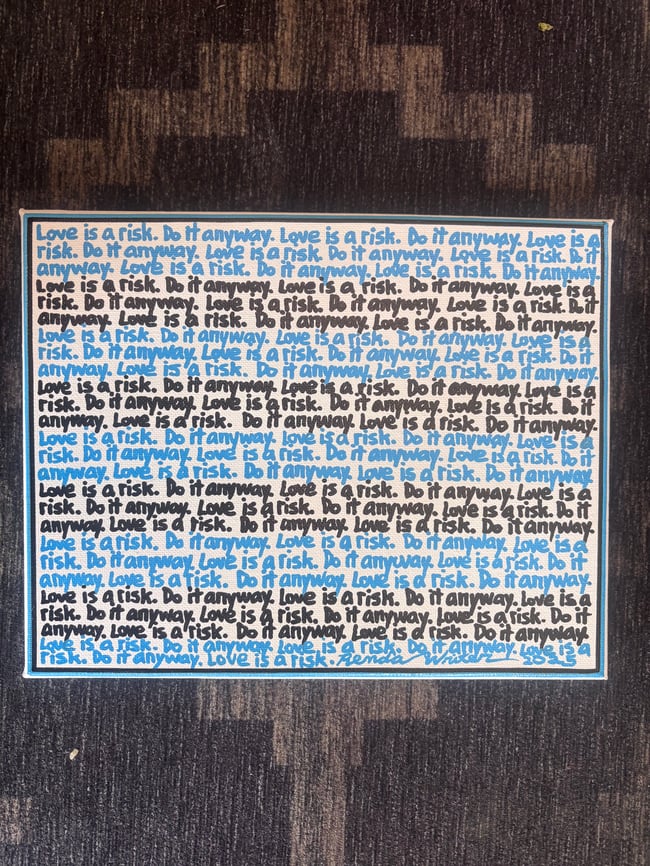 Love is a risk. Do it anyway. Love is a risk. Do it anyway. Love is a
risk. Do it anyway. Love is a risk. Do it anyway. Love is a risk. Do it
anyway. Love is a risk. Do it anyway. Love is a risk. Do it anyway.
Love is a risk. Do it anyway. Love is a risk. Do it anyway. Love is a
risk. Do it anyway. Love is a risk. Do it anyway. Love is a risk. Do it
anyway. Love is a risk. Do it anyway. Love is a risk. Do it anyway.
Love is a risk. Do it anyway. Love is a risk. Do it anyway. Love is a
risk. Do it anyway. Love is a risk. Do it anyway. Love is a risk. Do it
anyway. Love is a risk. Do it anyway. Love is a risk. Do it anyway.
Love is a risk. Do it anyway. Love is a risk. Do it anyway. Love is a
risk. Do it anyway. Love is a risk. Do it anyway. Love is a risk. Do it
anyway. Love is a risk. Do it anyway. Love is a risk. Do it anyway.
Love is a risk. Do it anyway. Love is a risk. Do it anyway. Love is a
risk. Do it anyway. Love is a risk. Do it anyway. Love is a risk. Do it
anyway. Love is a risk. Do it anyway. Love is a risk. Do it anyway.
Love is a risk. Do it anyway. Love is a risk. Do it anyway. Love is a
risk. Do it anyway. Love is a risk. Do it anyway. Love is a risk. Do it
anyway. Love is a risk. Do it anyway. Love is a risk. Do it anyway.
Love is a risk. Do it anyway. Love is a risk. Do it anyway. Love is a
risk. Do it anyway. Love is a risk. Do it anyway. Love is a risk. Do it
anyway. Love is a risk. Do it anyway. Love is a risk. Do it anyway.
Love is a risk. Do it anyway. Love is a risk. Do it anyway. Love is a
risk. Do it anyway. Love is a risk. Do it anyway. Love is a risk. Do it
anyway. Love is a risk. Do it anyway. Love is a risk. Do it anyway.
Love is a risk. Do it anyway. Love is a risk. Do it anyway. Love is a
risk. Do it anyway. Love is a risk. Kenda 2025